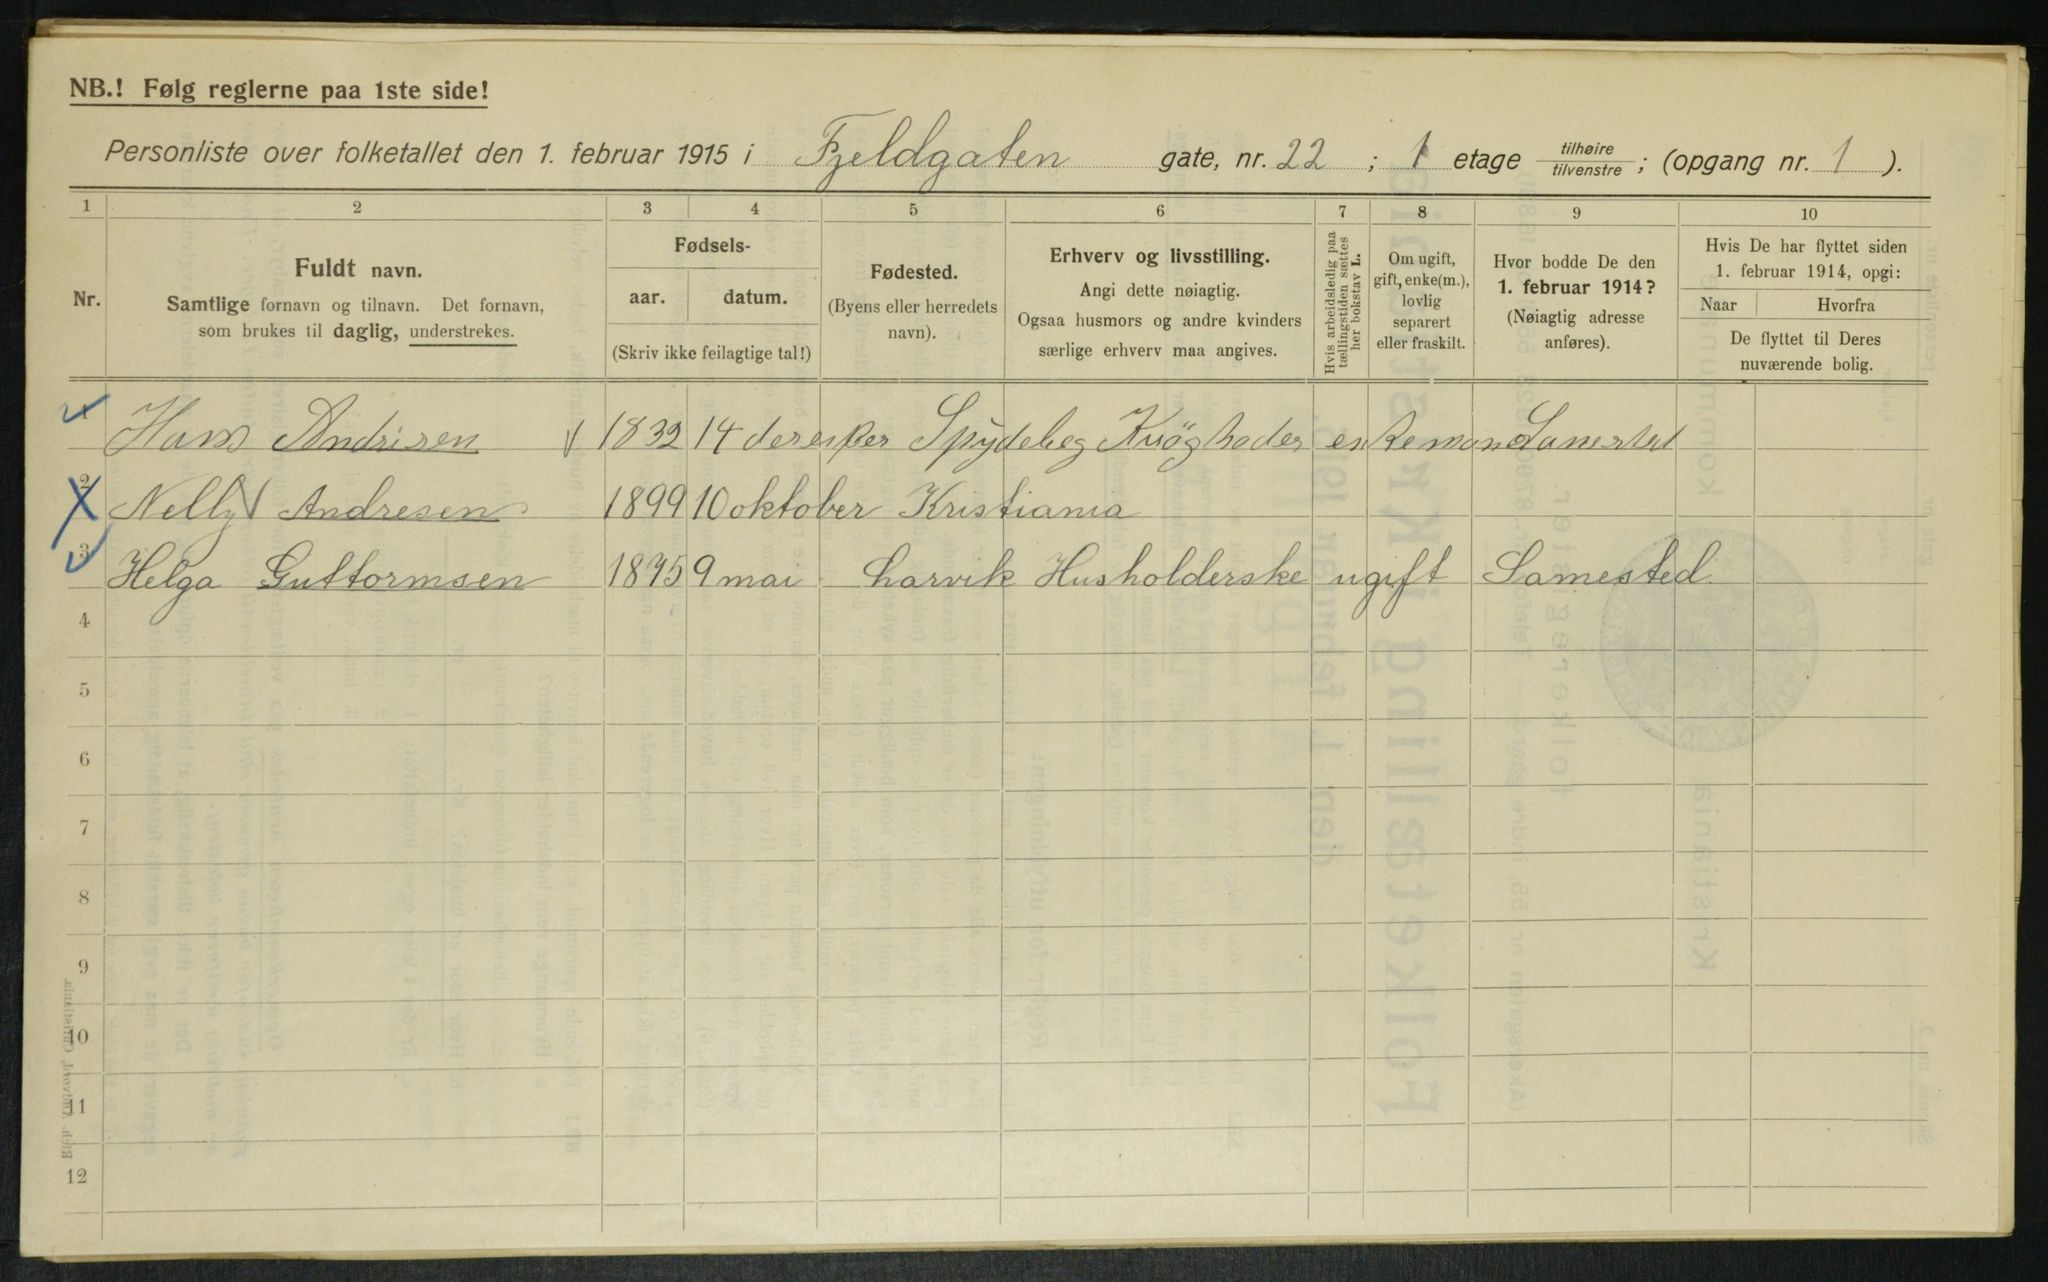 NB.! Følg reglerne paa 1ste side!
Personliste over folketallet den 1. februar 1915 i Fjeldgaten gate, nr. 22 ; 1 etage tilhøire / tilvenstre ; (opgang nr. 1 ).
1 2 3 4 5 6 7 8 9 10
Nr.
Fuldt navn.
Samtlige fornavn og tilnavn. Det fornavn,
som brukes til daglig, understrekes.
Fødsels-
aar. datum.
(Skriv ikke feilagtige tal!)
Fødested.
(Byens eller herredets
navn).
Erhverv og livsstilling.
Angi dette nøiagtig.
Ogsaa husmors og andre kvinders
særlige erhverv maa angives.
Hvis arbeidsledig paa
tællingstiden sættes
her bokstav L.
Om ugift,
gift, enke(m.),
lovlig
separert
eller fraskilt.
Hvor bodde De den
1. februar 1914?
(Nøiagtig adresse
anføres).
Hvis De har flyttet siden
1. februar 1914, opgi:
Naar Hvorfra
De flyttet til Deres
nuværende bolig.
1 Hans Andrisen 1832 14 Spydebeg enkeman
2 Nelly Andresen 1899 10 oktober Kristiania
3 Helga Guttormsen 1875 9 mai Larvik Husholderske ugift Samested
4
5
6
7
8
9
10
11
12